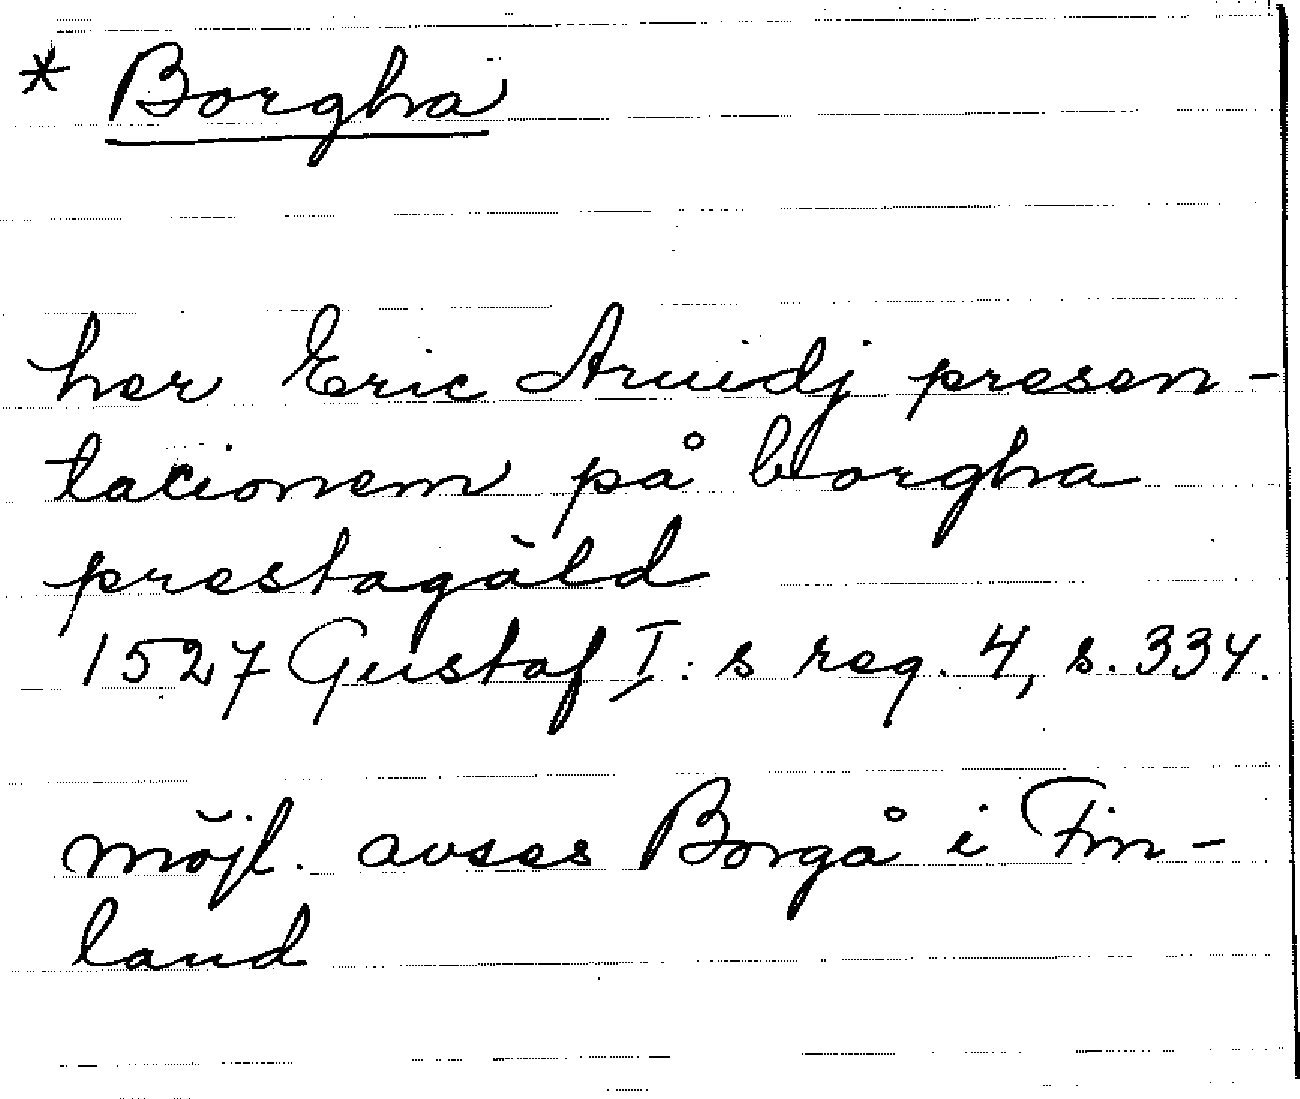 * Borgha
her Eric Aruidj presen-
tacionem på borgha
prestagäld
1527 Gustaf I:s reg. 4, s. 334.
möjl. avses Borgå i Fin-
land